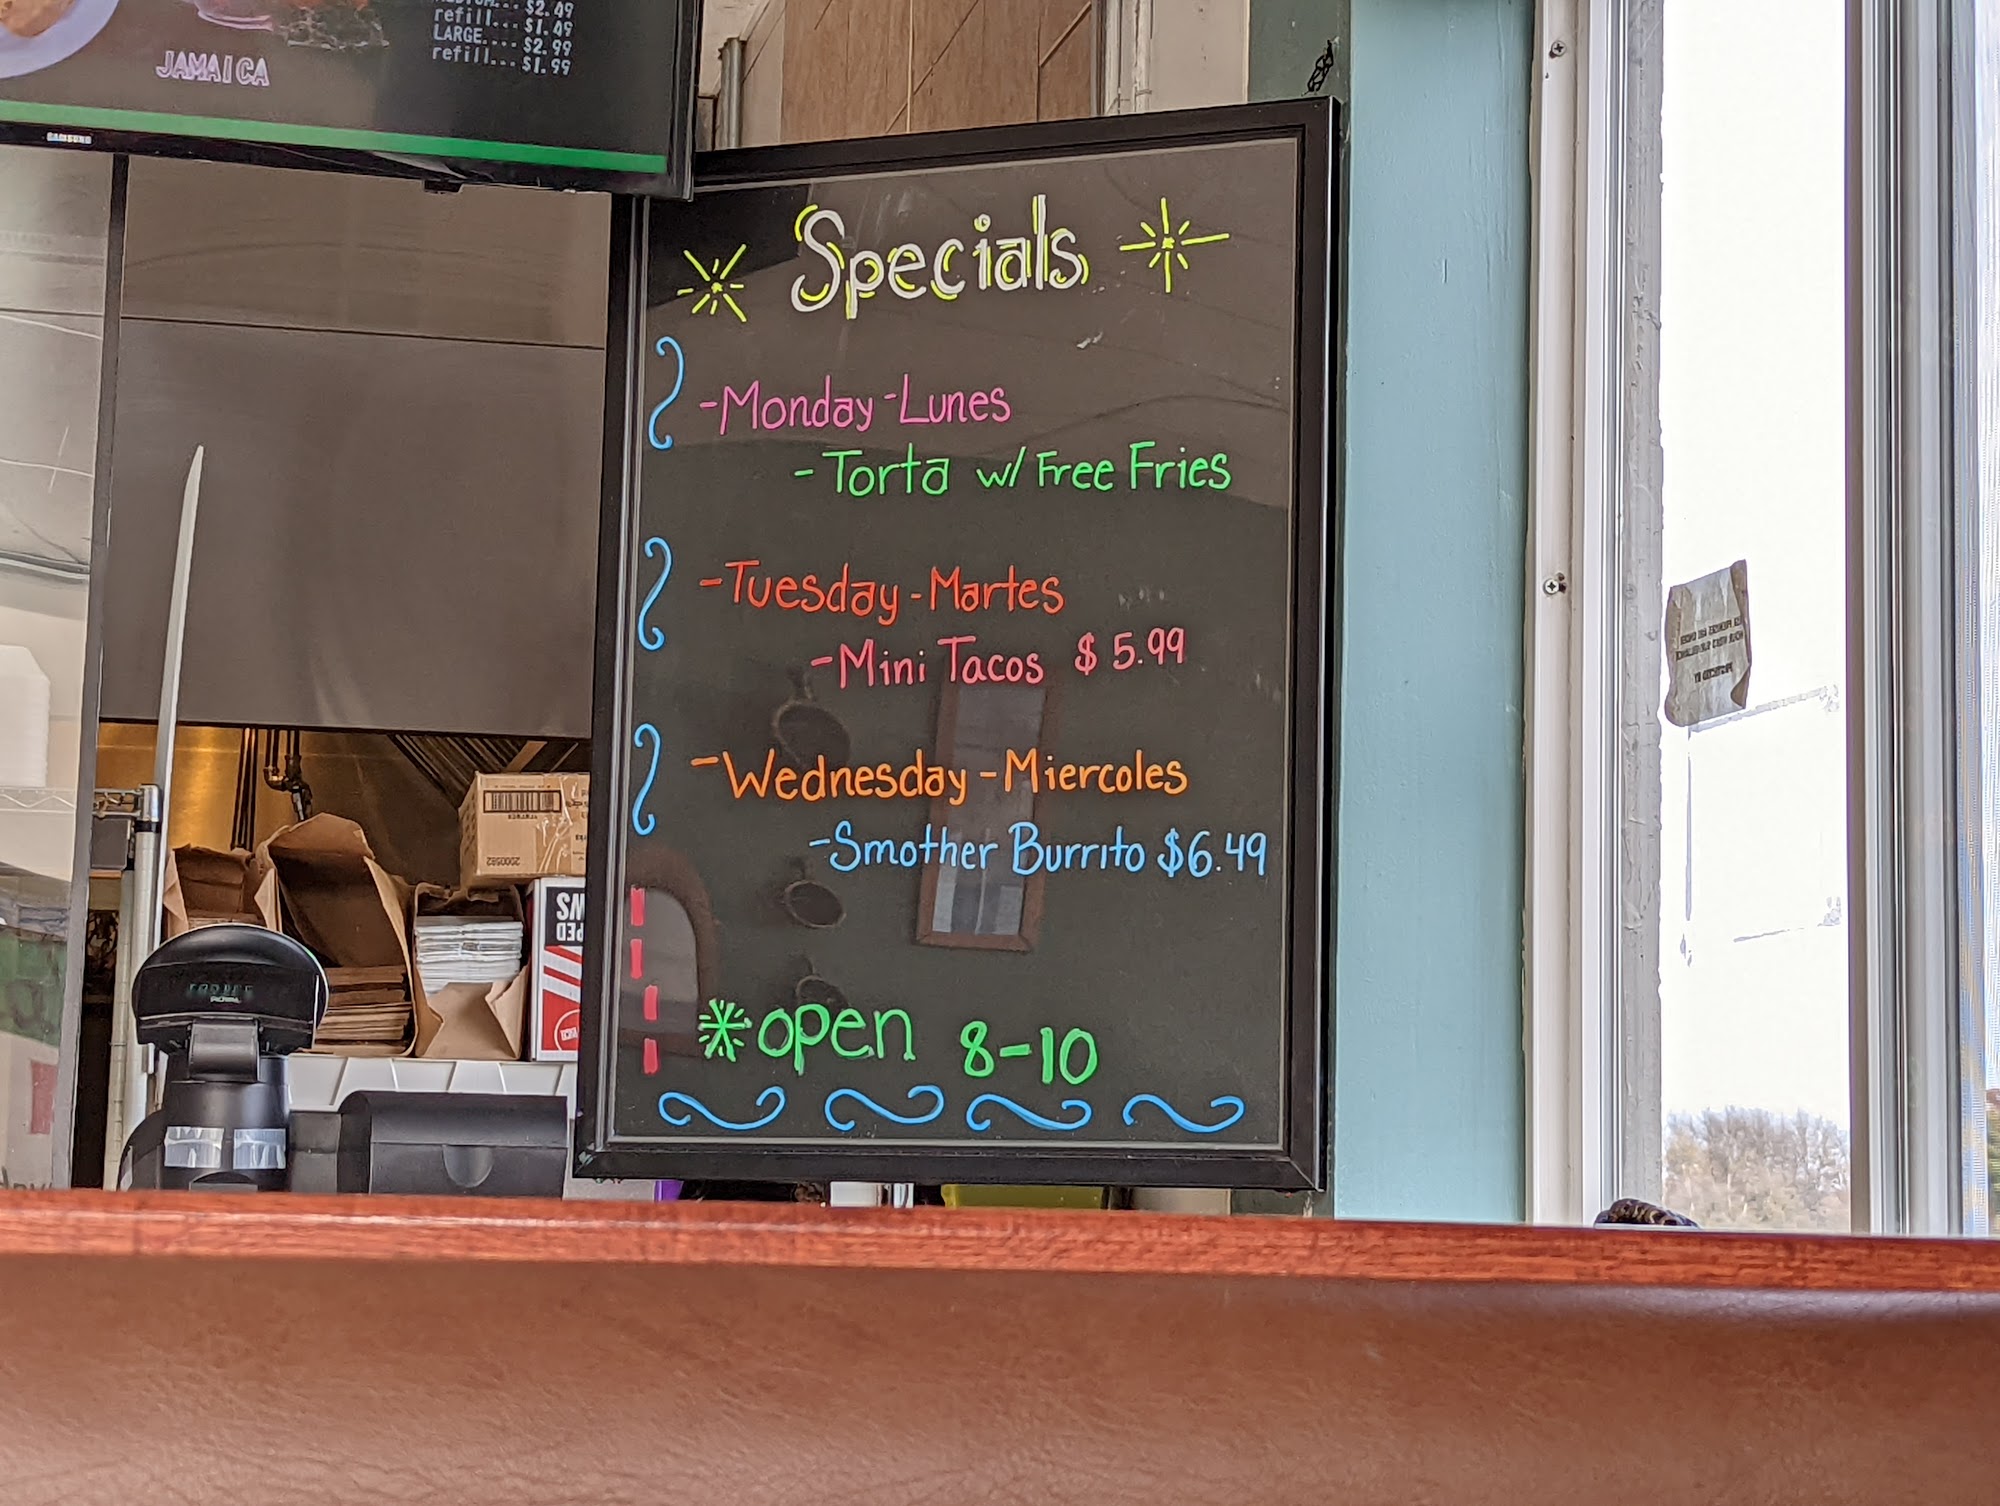 $2.49
refill... $1.49
LARGE.... $2.99
refill... $1.99
JAMAICA
SAMSUNG
Specials
-Monday-Lunes
-Torta w/ Free Fries
-Tuesday-Martes
-Mini Tacos $5.99
-Wednesday-Miercoles
-Smother Burrito $6.49
*open 8-10
ROYAL